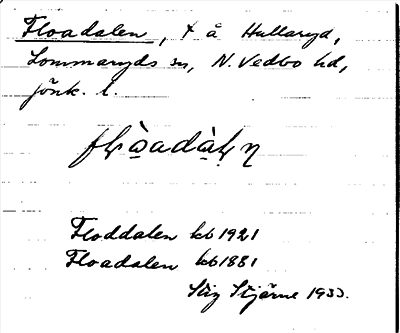 Floadalen, t å Hullaryd,
Lommaryds sn, N. Vedbo hd,
Jönk. l.
Floddalen kb 1921
Floadalen kb 1881
Stig Stjärne 1933.